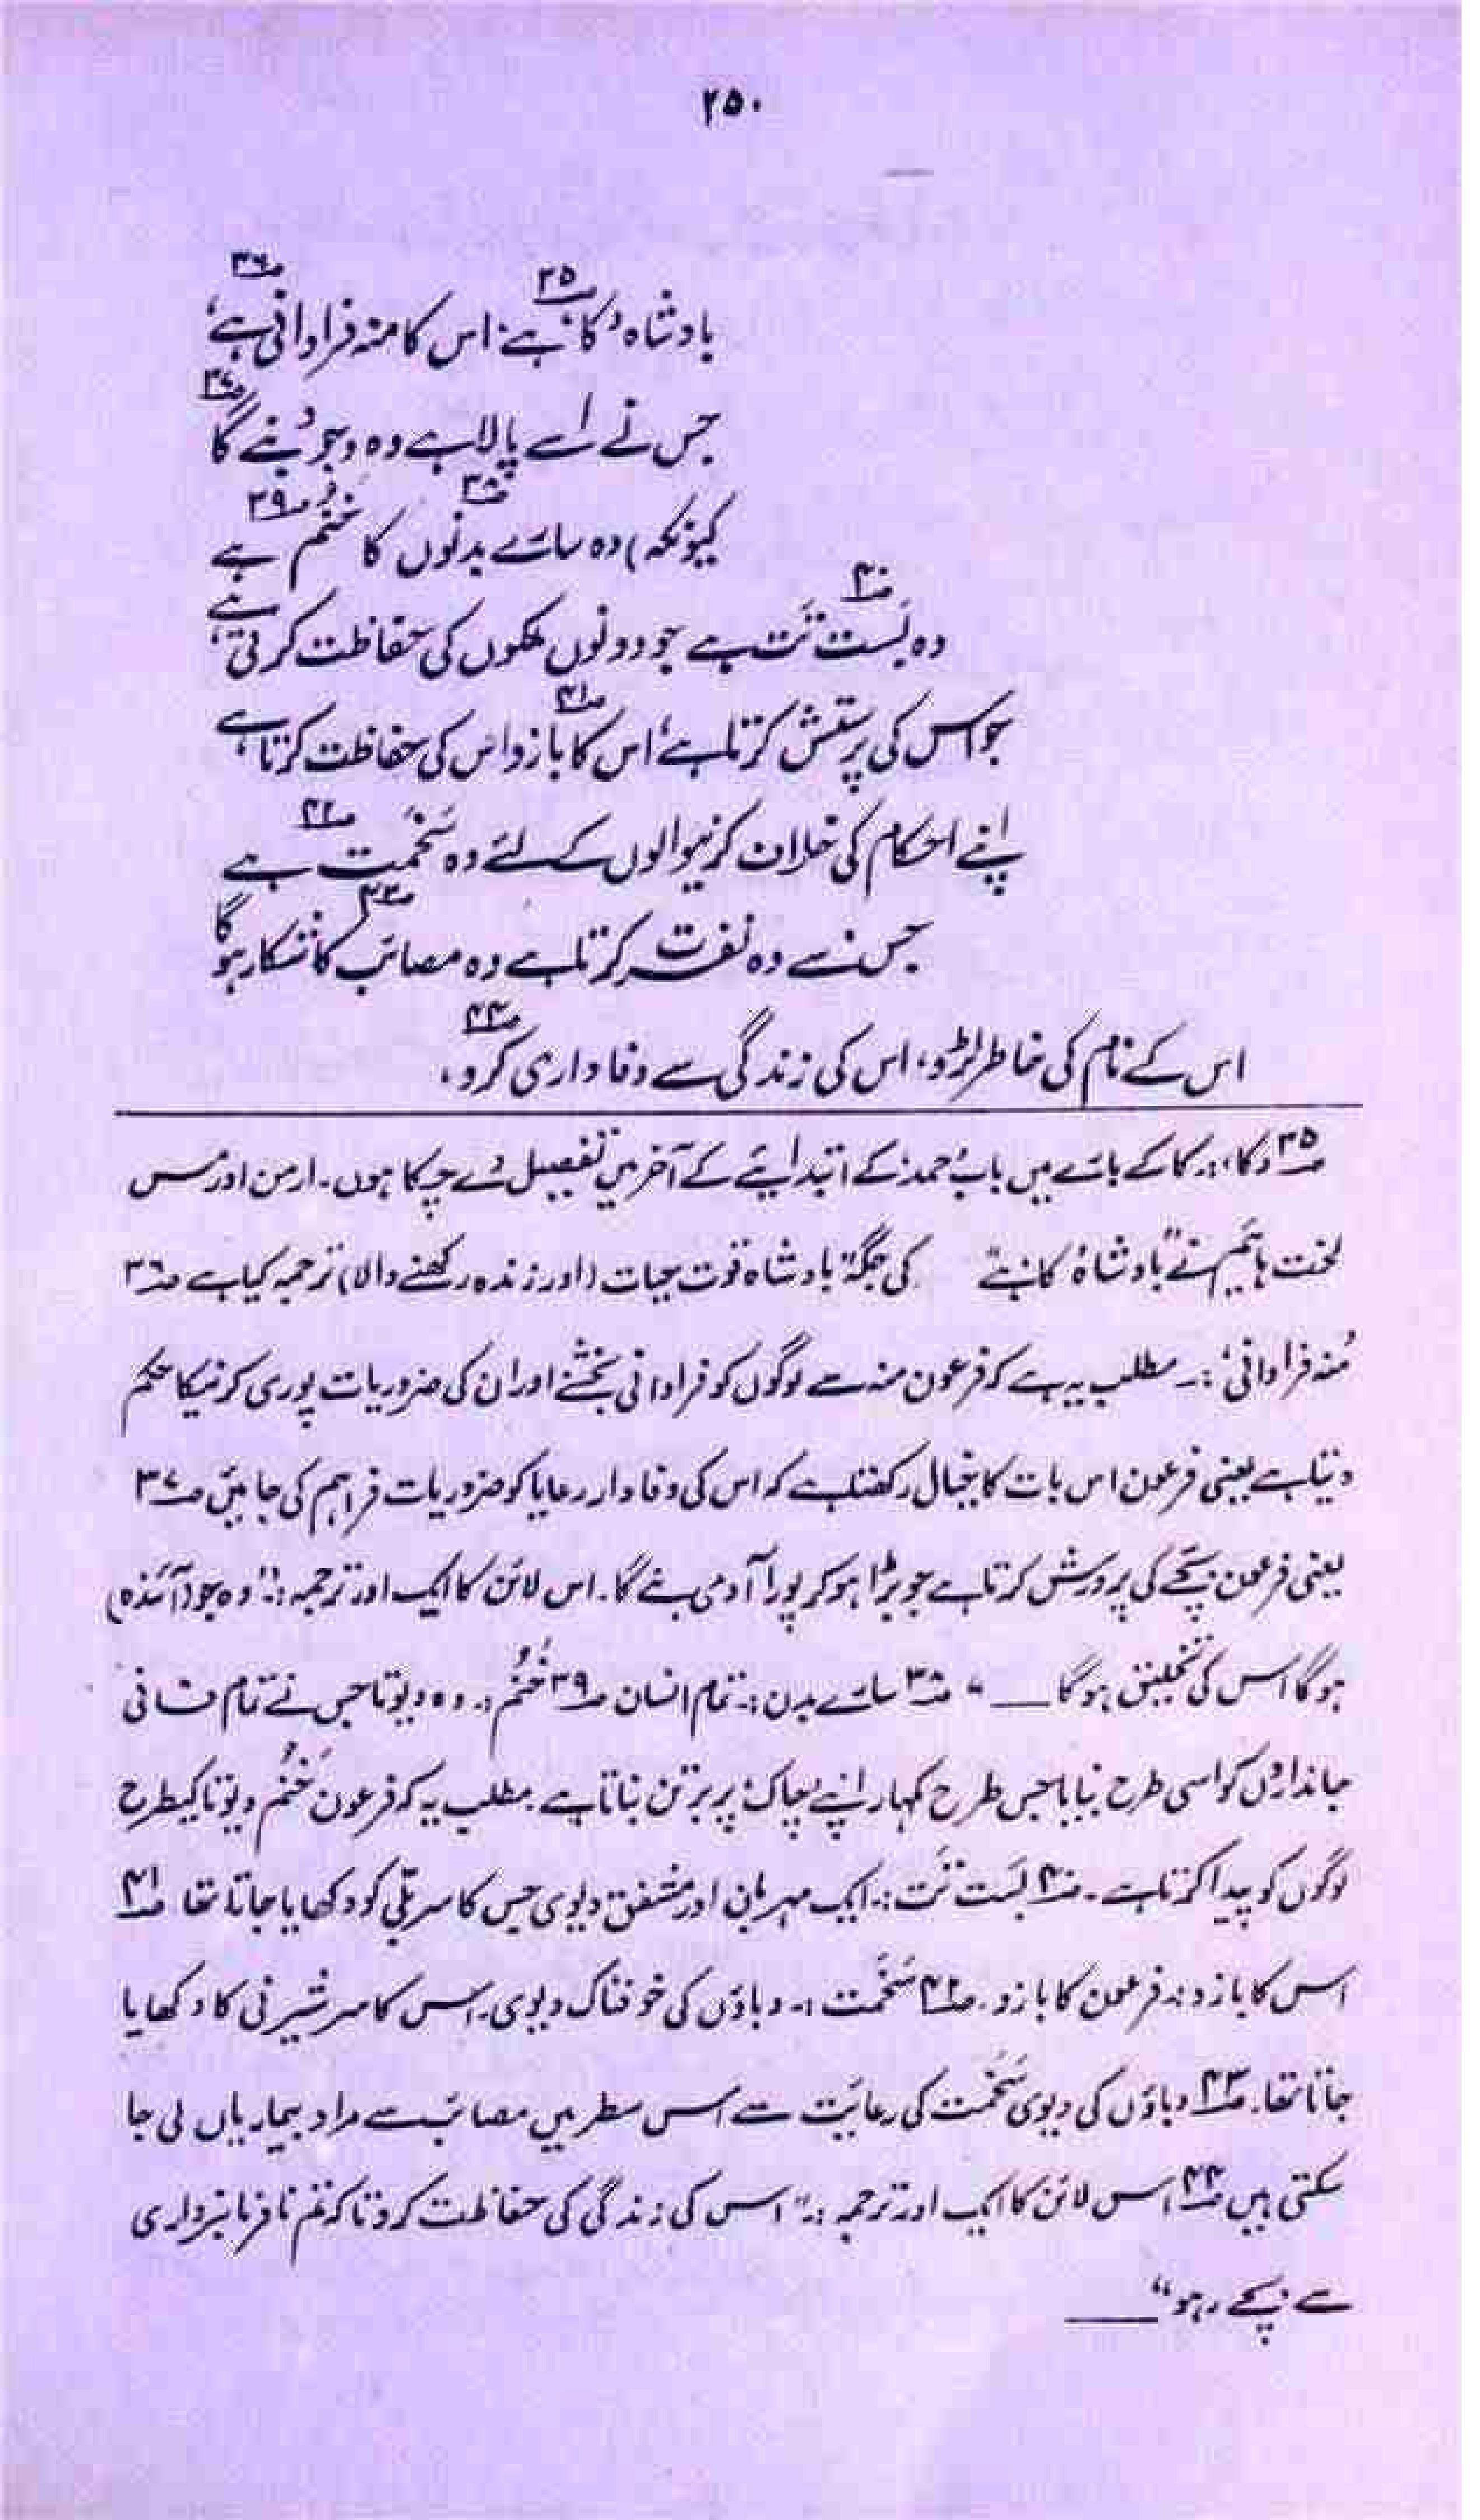 ۲۵۰
بادشاہ 'کا'۳۵ ہے: اس کا منہ فراوانی ہے،۳۶
جس نے اسے پالا ہے وہ 'وجود' بنے گا۳۷
کیونکہ) وہ سارے بدنوں۳۸ کا خنم۳۹ ہے
وہ بَست تَت۴۰ ہے جو دونوں ملکوں کی حفاظت کرتی ہے،
جو اس کی پرستش کرتا ہے، اس کا بازو۴۱ اس کی حفاظت کرتا ہے
اپنے احکام کی خلاف کرنیوالوں کے لئے وہ سَخمَت۴۲ ہے
جس سے وہ نفرت کرتا ہے وہ مصائب۴۳ کا شکار ہو گا
اس کے نام کی خاطر لڑو، اس کی زندگی سے وفاداری کرو،۴۴
۳۵ 'کا': ۔ کا کے بارے میں باب حمد کے ابتدائیے کے آخر میں تفصیل دے چکا ہوں۔ ارمن اور مس
لخت ہائیم نے "بادشاہ 'کا' ہے" کی جگہ "بادشاہ قوت حیات (اور زندہ رکھنے والا) ترجمہ کیا ہے ۳۶
'منہ فراوانی': ۔ مطلب یہ ہے کہ فرعون منہ سے لوگوں کو فراوانی بخشنے اور ان کی ضروریات پوری کرنیکا حکم
دیتا ہے یعنی فرعون اس بات کا خیال رکھتا ہے کہ اس کی وفادار رعایا کو ضروریات فراہم کی جائیں ۳۷
یعنی فرعون بچے کی پرورش کرتا ہے جو بڑا ہو کر پورا آدمی بنے گا۔ اس لائن کا ایک اور ترجمہ: ۔ "وہ جو (آئندہ)
ہو گا اس کی تخلیق ہو گا ــــ " ۳۸ سارے بدن: ۔ تمام انسان ۳۹ خنُم: ۔ وہ دیوتا جس نے تمام فانی
جانداروں کو اسی طرح بنایا جس طرح کمہار اپنے 'چاک' پر برتن بناتا ہے۔ مطلب یہ کہ فرعون خنُم دیوتا کیطرح
لوگوں کو پیدا کرتا ہے۔ ۴۰ بَست تَت: ۔ ایک مہربان اور مشفق دیوی جس کا سر بلی کو دکھایا جاتا تھا ۴۱
اس کا بازو: ۔ فرعون کا بازو۔ ۴۲ سَخمَت: ۔ وباؤں کی خوفناک دیوی۔ اس کا سر شیرنی کا دکھایا
جاتا تھا۔ ۴۳ وباؤں کی دیوی سَخمت کی رعایت سے اس سطر میں مصائب سے مراد بیماریاں لی جا
سکتی ہیں ۴۴ اس لائن کا ایک اور ترجمہ: ۔ "اس کی زندگی کی حفاظت کرو تاکہ تم نافرمانبرداری
سے بچے رہو" ــــ